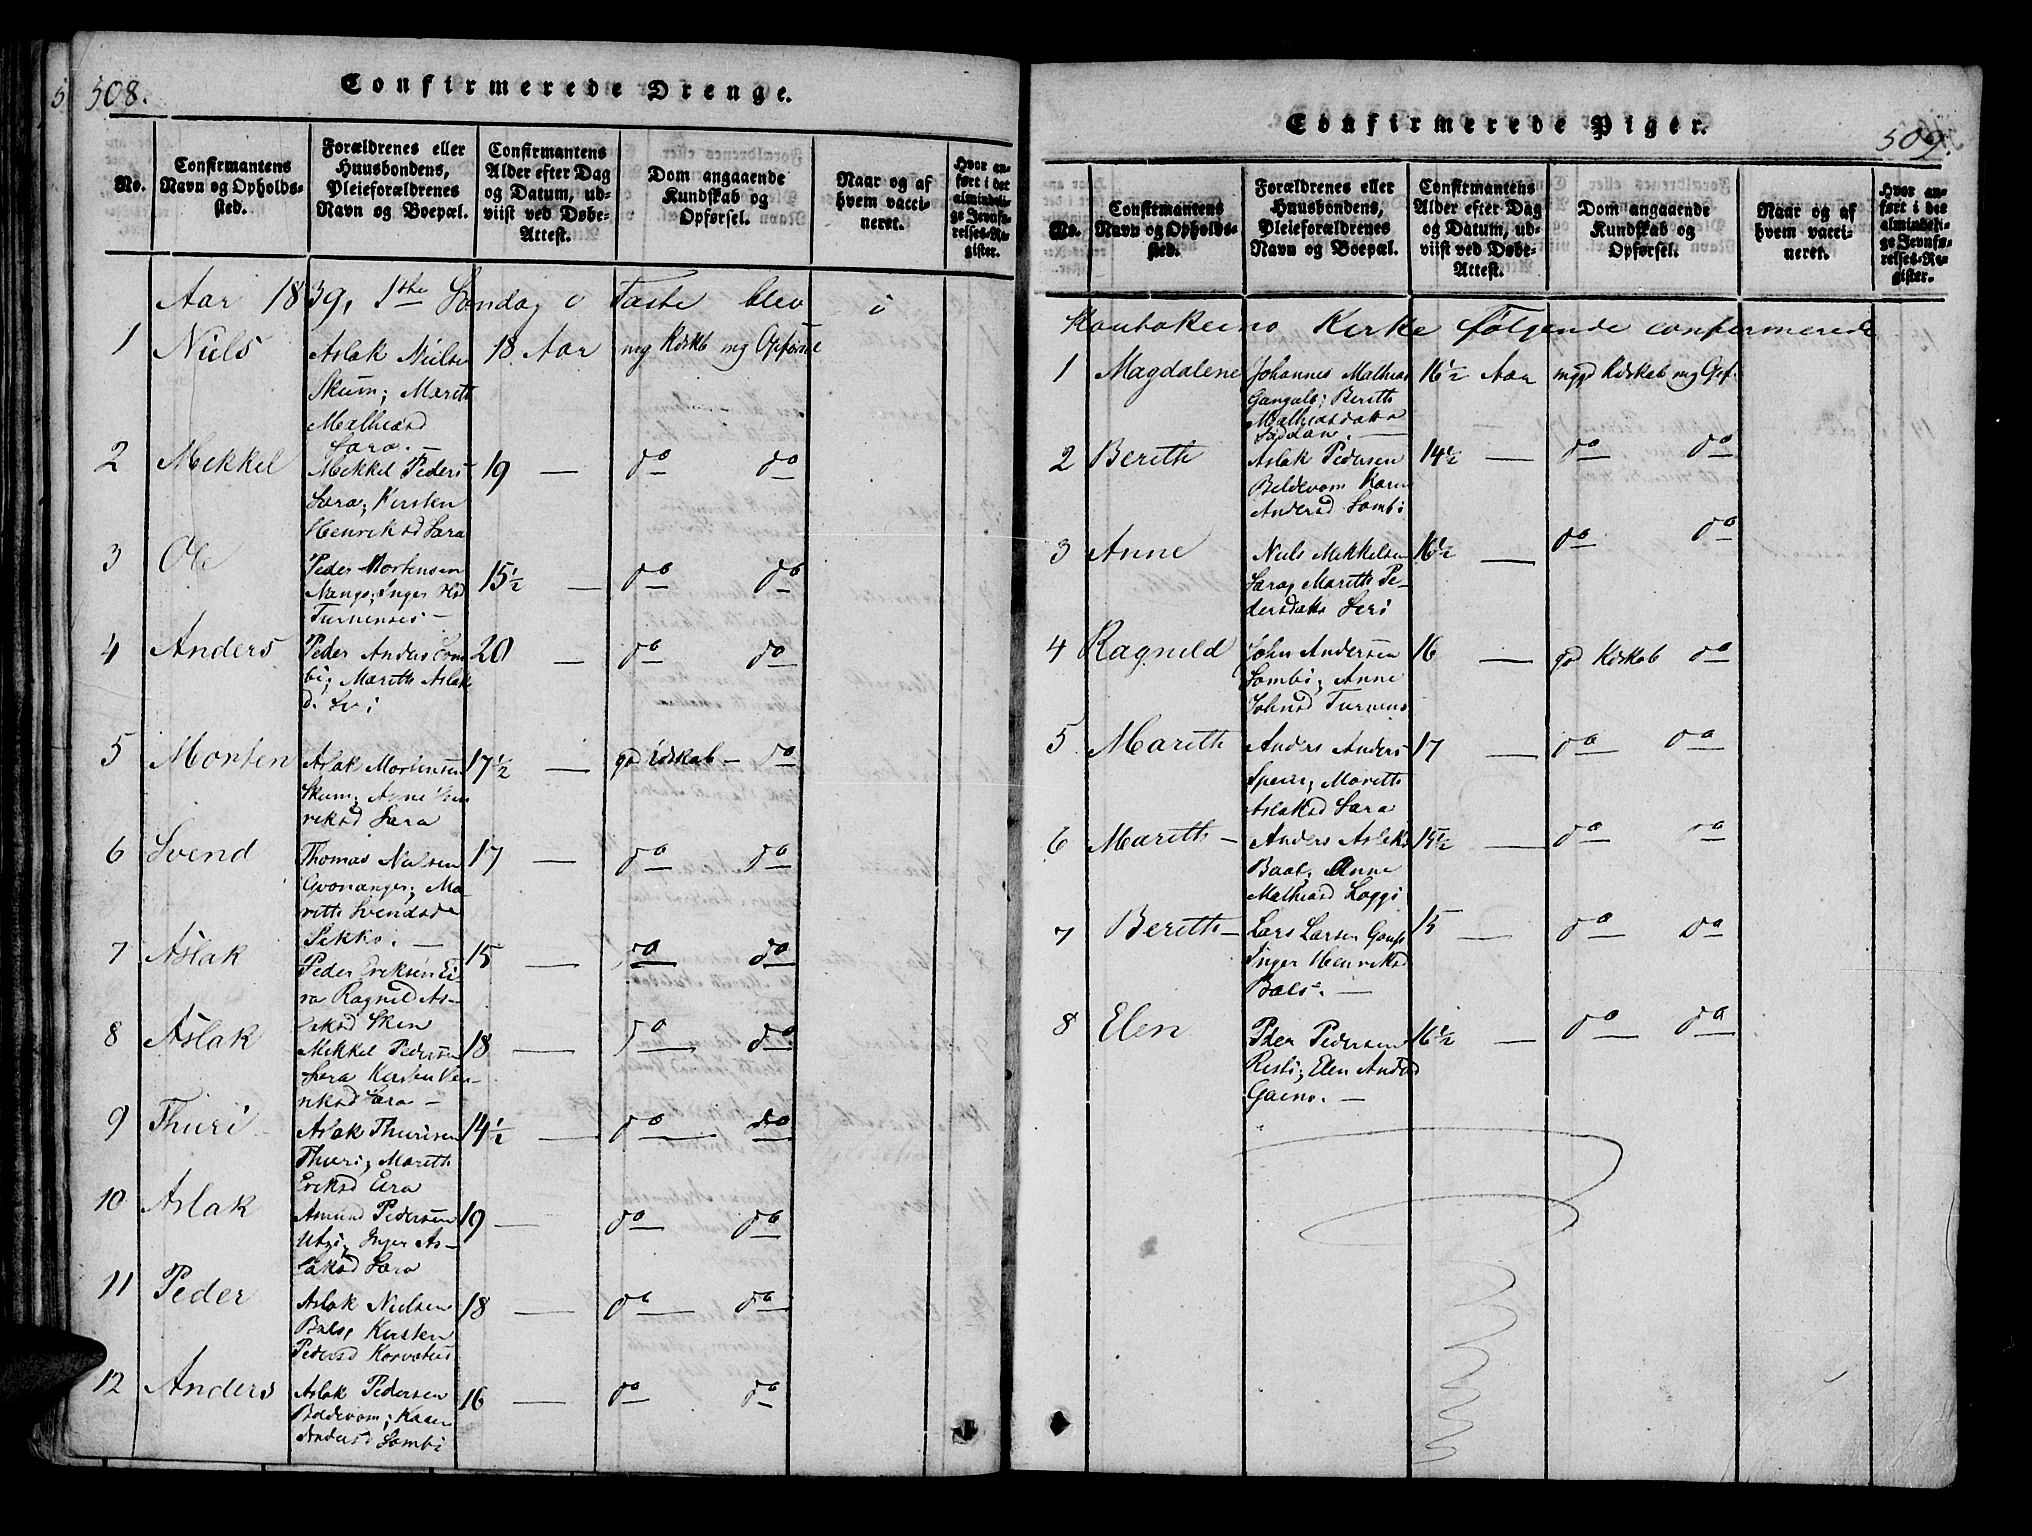 508.
Confirmerede Drenge.
No.
Confirmantens
Navn og Opholds-
sted.
Forældrenes eller
Huusbondens,
Pleieforældrenes
Navn og Boepæl.
Confirmantens
Alder efter Dag
og Datum, ud-
viist ved Døbe-
Attest.
Dom angaaende
Kundskab og
Opførsel.
Naar og af
hvem vacci-
neret.
Hvor an-
ført i det
almindeli-
ge Jevnfø-
relses-Re-
gister.
Aar 1839, 1ste Søndag i Faste blev i
1 Niels
Aslak Nielsen
Skum; Mareth
Mathisd
Sara. —
18 Aar
mg Kdskb mg Opførsel
2 Mekkel
Mekkel Peders
Sara; Kirsten
Henriksd Sara
19 —
do do
3 Ole
Peder Mortensen
Nango; Inger
Turnensis —
15½ —
do do
4 Anders
Peder Anders Som
bi; Mareth Aslak
d.
20 —
do do
5 Morten
Aslak Mortensen
Skum; Anne Hen
riksd Sara
17½ —
gd Kdskab — do
6 Svend
Thomas Nielsen
Qvonanger; Ma
reth Svendsd
Pekko. —
17 —
do do
7 Aslak
Peder Eriksen Ei
ra Ragnild As—
laksd
15 —
do do
8 Aslak
Mekkel Pedersen
Sara Kirsten Hen—
riksd Sara —
18 —
do do
9 Thuri
Aslak Thurisen
Thuri; Mareth
Eriksd Eira
14½ —
do do
10 Aslak
Asmund Pedersen
Utzi; Inger As—
laksd Sara
19 —
do do
11 Peder
Aslak Nielsen
Bals; Kirsten
Pedersd
18 —
do do
12 Anders
Aslak Pedersen
Beldevom; Karen
Andersd Sombi
16 —
do do
Confirmerede Piger.
509.
No.
Confirmantens
Navn og Opholds-
sted.
Forældrenes eller
Huusbondens,
Pleieforældrenes
Navn og Boepæl.
Confirmantens
Alder efter Dag
og Datum, ud-
viist ved Døbe-
Attest.
Dom angaaende
Kundskab og
Opførsel.
Naar og af
hvem vacci-
neret.
Hvor an-
ført i det
almindeli-
ge Jevnfø-
relses-Re-
gister.
Koutokeino Kirke følgende confirmerede
1 Magdalene
Johannes Mathias
Bereth
Mathiasdatter
16½ Aar
Kdskab mg Opf.
2 Bereth
Aslak Pedersen
Beldevom Karen
Andersd Sombi
14½ —
do do
3 Anne
Niels Mekkelsen
Sara; Mareth Pe
dersdatr
16½ —
do do
4 Ragnild
John Andersen
Sombi; Anne
Johnsd Turnens
16 —
gd Kdskab do
5 Mareth
Anders Anders
Spein; Mareth
Aslaksd Sara
17 —
do do
6 Mareth —
Anders Aslaks
Baal; Anne
Mathiasd Loggi
15½ —
do do
7 Bereth —
Lars Larsen Goup
Inger Henriksd
Bals. —
15 —
do do
8 Elen
Peder Pedersen
Risti; Elen Andsd
Gaino. —
16½ —
do do